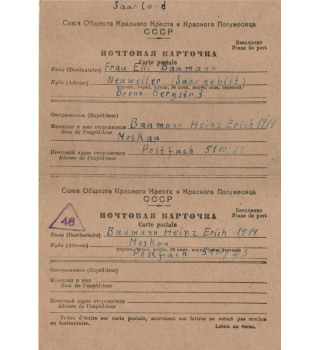 Saarland
Союз Обществ Красного Креста и Красного Полумесяца
СССР
ПОЧТОВАЯ КАРТОЧКА
Бесплатно
Franc de port
Carte postale
Кому (Destinataire) Frau Elli Baumann
Куда (Adresse) Neuweiler (Saargebiet)
страна, город, улица, № дома, округ, село, деревня
Отправитель (Expéditeur)
Фамилия и имя отправителя Baumann Heinz Erich 1919
Nom de l'expéditeur
Moskau
Почтовый адрес отправителя Postfach
Adresse de l'expéditeur
Союз Обществ Красного Креста и Красного Полумесяца
СССР
Бесплатно
Franc de port
46
ПОЧТОВАЯ КАРТОЧКА
Carte postale
Кому (Destinataire) Baumann Heinz Erich 1919
Куда (Adresse) Moskau
страна, город, улица, № дома, округ, село, деревня
Postfach
Отправитель (Expéditeur)
Фамилия и имя
Nom de l'expéditeur
Почтовый адрес отправителя
Adresse de l'expéditeur
Prière d'écrire sur carte postale, autrement les lettres ne seront pas remises au destinataire.
Lettre au verso.